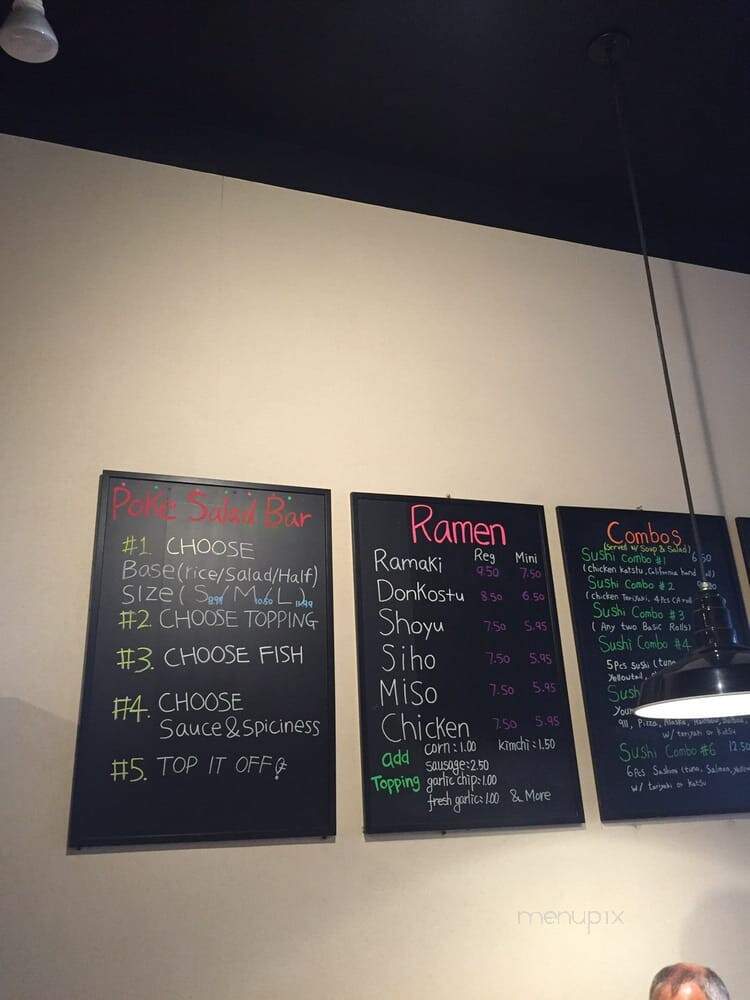 Poke Salad Bar
#1 CHOOSE
Base(rice/Salad/Half)
SIZE(S 8.99/M 10.50/L) 11.99
#2 CHOOSE TOPPING
#3. CHOOSE FISH
#4. CHOOSE
Sauce&Spiciness
#5. TOP IT OFF
Ramen
Reg Mini
Ramaki 9.50 7.50
Donkostu 8.50 6.50
Shoyu 7.50 5.95
Siho 7.50 5.95
Miso 7.50 5.95
Chicken 7.50 5.95
add Topping
corn: 1.00 kimchi: 1.50
sausage: 2.50
garlic chip: 1.00
fresh garlic: 1.00 & More
Combos
(Served w/ Soup & Salad)
Sushi Combo #1
(chicken katstu, California hand
Sushi Combo #2
(chicken Teriyaki, 4pcs CA roll
Sushi Combo #3
(Any two Basic Rolls)
Sushi Combo #4
5pcs Sushi (tuna
Yellowtail,
Sushi
911, Pizza, Alaska,
w/ teriyaki or katsu
Sushi Combo #6 12.50
6pcs Sashimi (tuna, Salmon,
w/ teriyaki or katsu
menupix